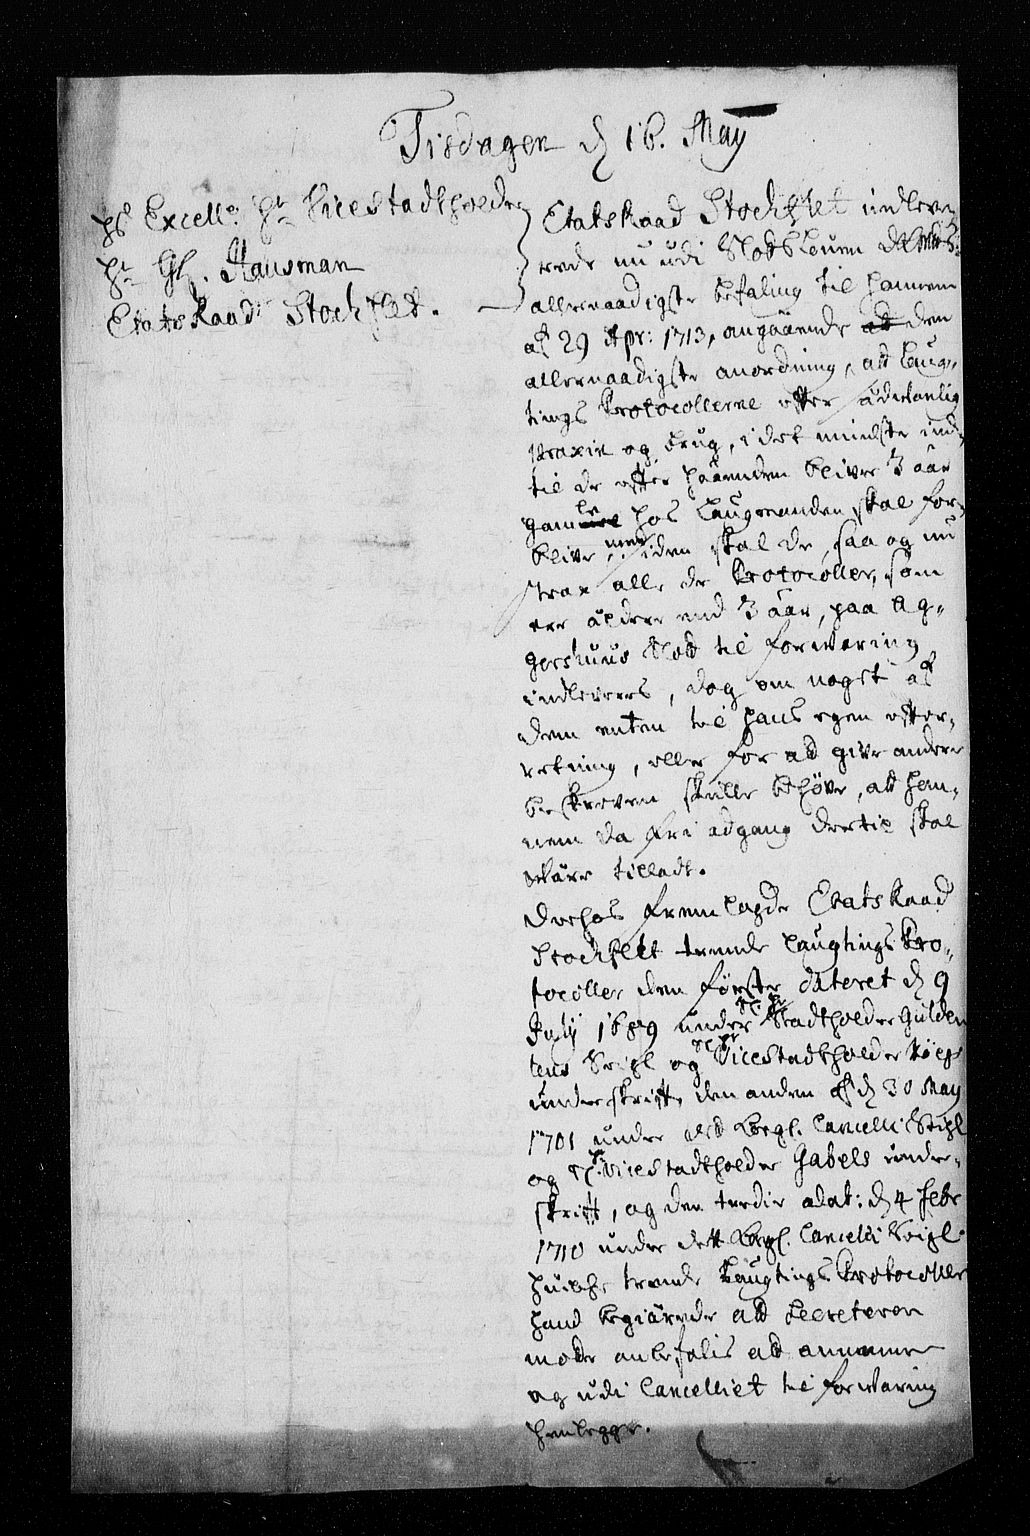 Tisdagen d 16. May
Hs Excell: Hr Vicestadtholder
Hr Gl. Hausman
EtatsRaad Stochflet.
EtatsRaad Stochflet indleve-
rede nu udi Slotsloven
allernaadigste befaling til hannem
af 29 Apr: 1713, angaaende att den
allernaadigste anordning, att Laug-
tings Protocollerne effter sædvanlig
praxin og brug, i det mindste ind-
til de effter haanden bliver 3 aar
gamle hos Laugmanden skal for-
blive, men siden skal de, saa og nu
strax alle de Protocoller, som
ere ældere end 3 aar, paa Ag-
gershuus Slott til forwaring
indleveres, dog om nogst af
dem enten til hans egen effter-
retning, eller for at give andere
beskreven skulle behøve, att han-
nem da fri adgang dertil skal
være tilladt.
Derhos fremlagde EtatsRaad
Stochflet trende Laugtings Pro-
tocoller den første dateret d 9
July 1689 under Sl. Hr Stadtholder Gülden
lews Seigl og Sl. Hr Vicestadtholder Høegs
underskrifft, den anden af d 30 May
1701 under det Kongl. Cancelli Seigl
og Sl. Hr Vicestadtholder Gabels under-
skrifft, og den tredie dat: d 4 Febr
1710 under dett Kongl. Cancelli Seigl
huilche trende Laugtings Protocoller
hand begiærede att Secreteren
motte anbefalis att annamme
og udi Cancelliet til forwaring
henlegge.